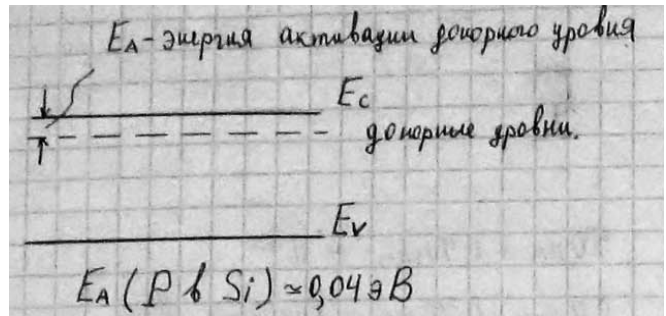 EA - энергия активации донорного уровня
Ec
донорные уровни.
Ev
EA (P в Si) ≃ 0,04 эВ